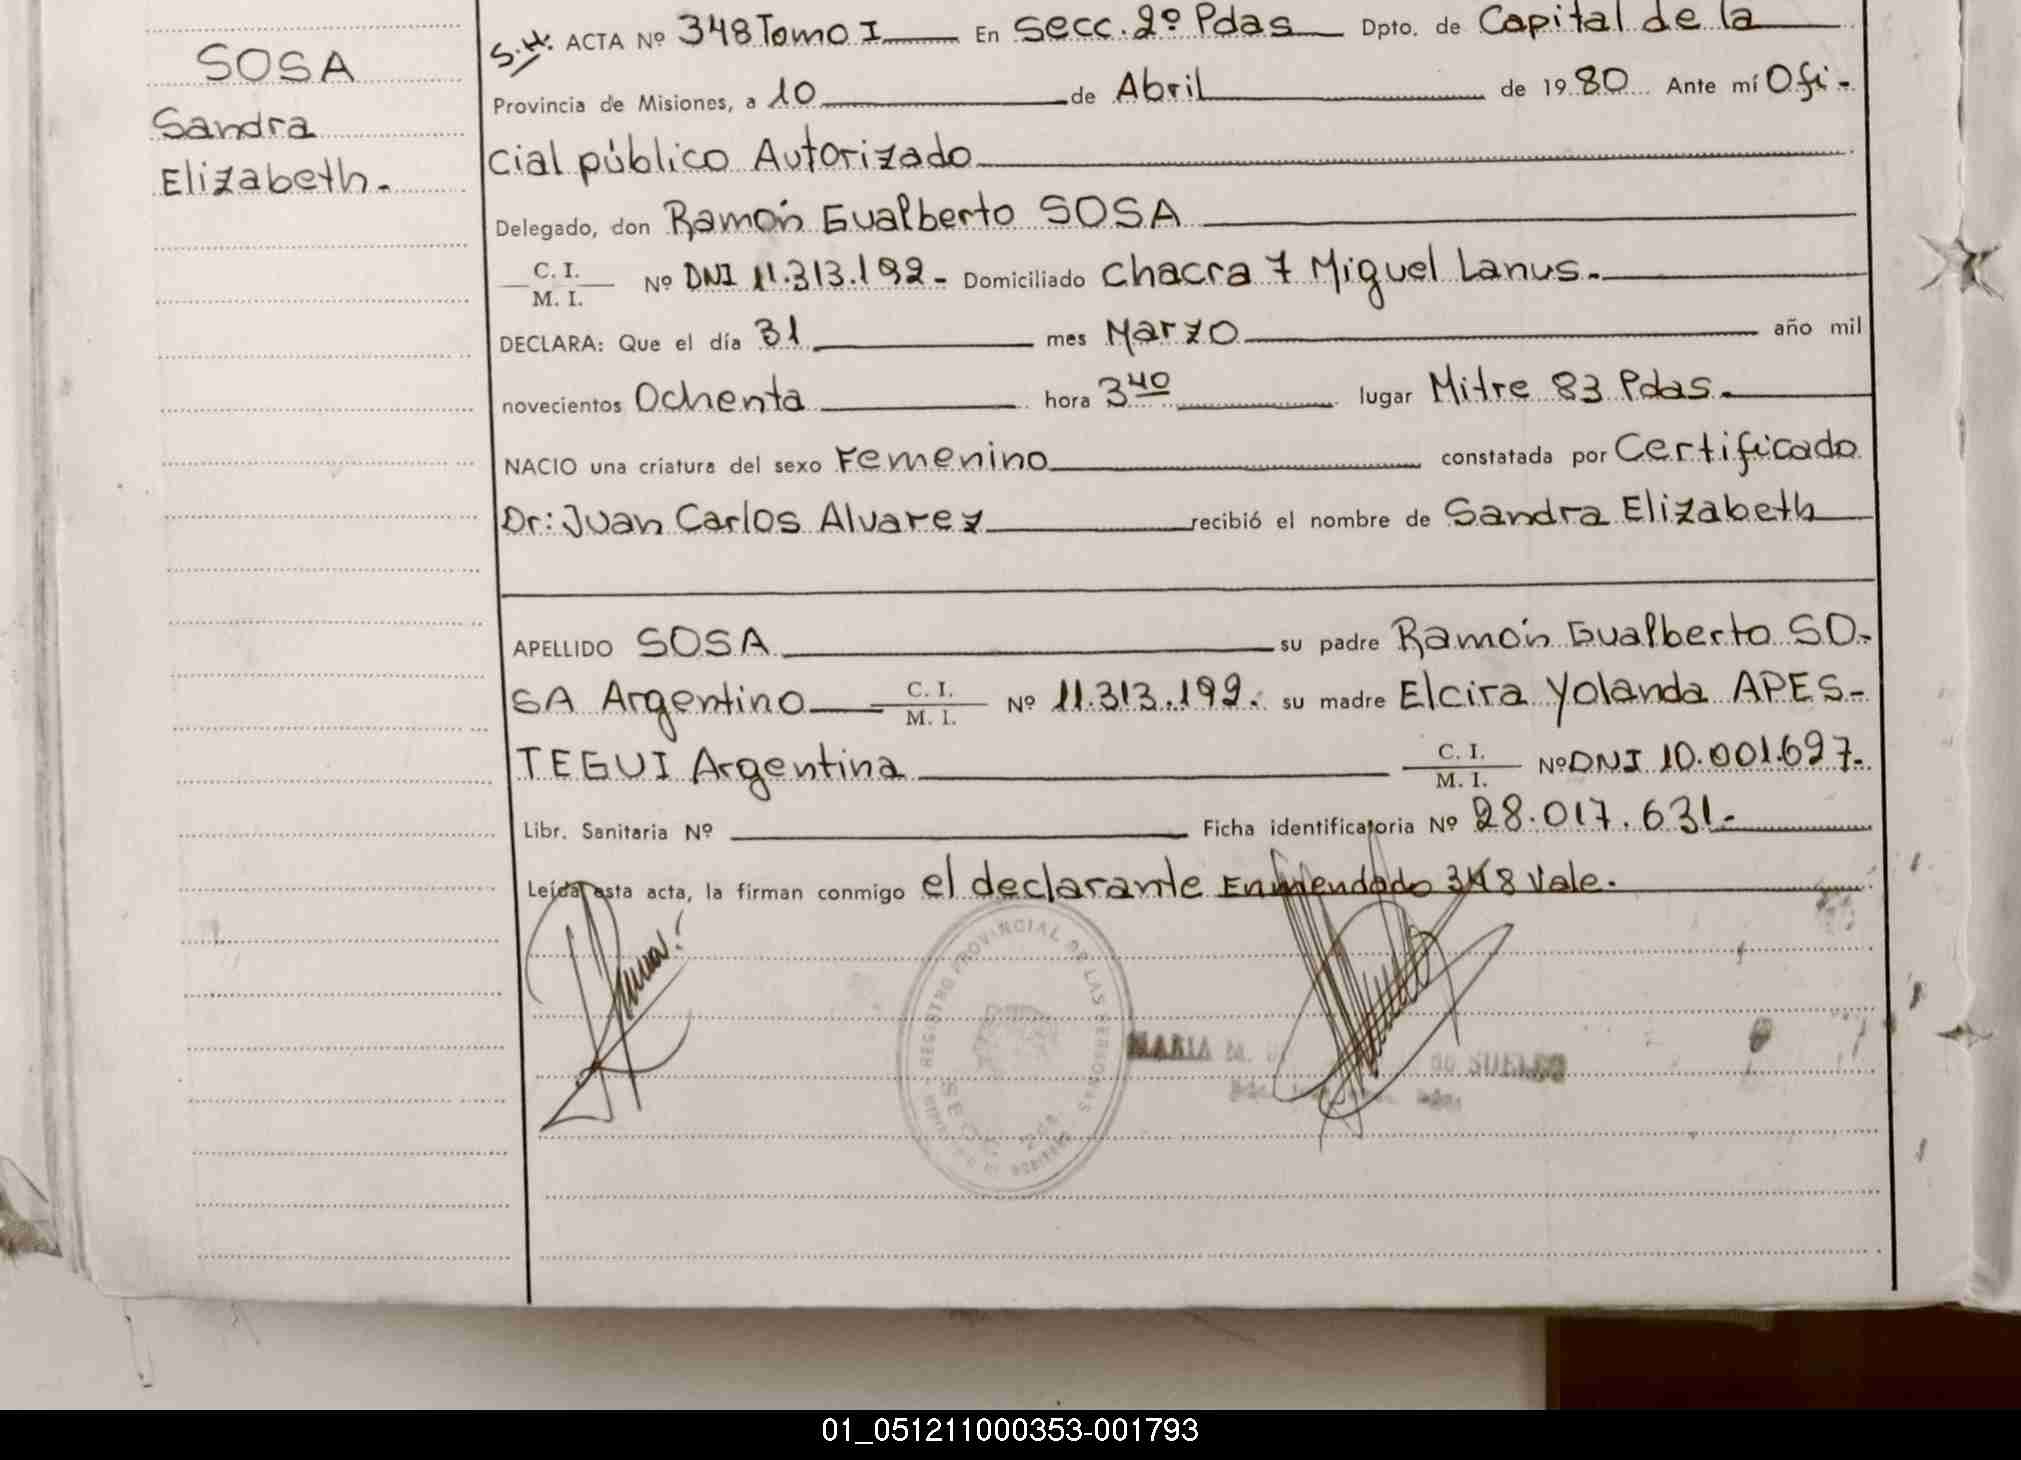 SOSA
Sandra
Elizabeth.
S.H. ACTA Nº 348 Tomo I En Secc. 2º Pdas Dpto. de Capital de la
Provincia de Misiones, a 10 de Abril de 1980 Ante mí Ofi-
cial público Autorizado
Delegado, don Ramón Gualberto SOSA
C. I.
M. I. Nº DNI 11.313.192- Domiciliado Chacra 7 Miguel Lanus.
DECLARA: Que el día 31 mes Marzo año mil
novecientos Ochenta hora 3 40 lugar Mitre 83 Pdas.
NACIO una criatura del sexo Femenino constatada por Certificado
Dr: Juan Carlos Alvarez recibió el nombre de Sandra Elizabeth
APELLIDO SOSA su padre Ramón Gualberto SO-
SA Argentino C. I. M. I. Nº 11.313.192. su madre Elcira Yolanda APES-
TEGUI Argentina C. I. M. I. Nº DNI 10.001.697-
Libr. Sanitaria Nº Ficha identificatoria Nº 28.017.631-
Leída esta acta, la firman conmigo el declarante Enmendado 348 Vale.
REGISTRO PROVINCIAL DE LAS PERSONAS
MARIA M.
01_051211000353-001793